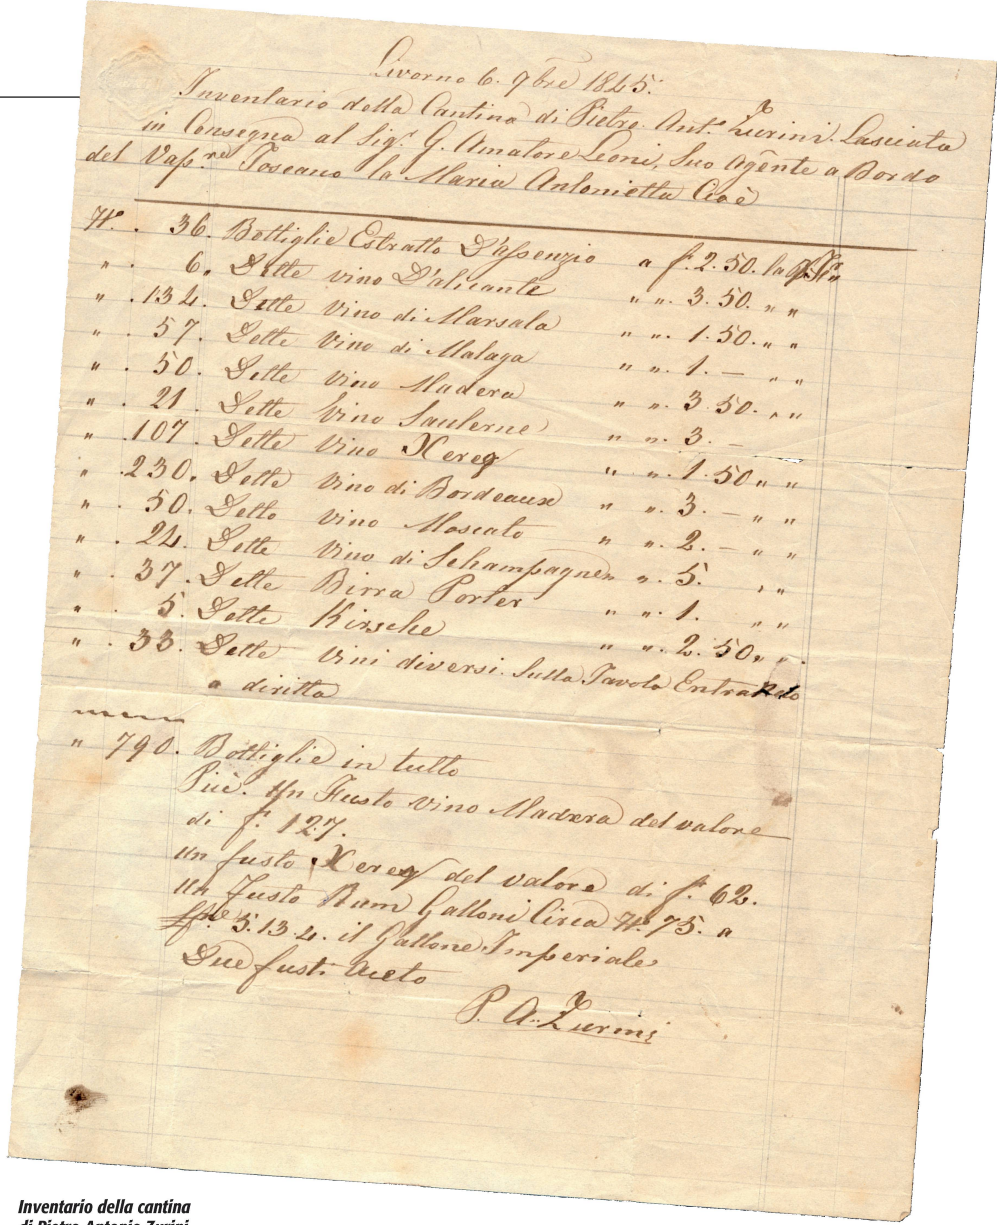 Livorno 6. 9bre 1845.
Inventario della Cantina di Pietro Ant.o Zurini. Lasciata
in Consegna al Sig.r G. Amatore Leoni, Suo Agente a Bordo
del Vap.re Toscano la Maria Antonietta Cioè
N.o . 36. Bottiglie Estratto D'assenzio a f. 2.50. la
" . 6. Dette vino D'alicante " ". 3.50. " "
" . 134. Dette Vino di Marsala " ". 1.50. " "
" . 57. Dette Vino di Malaga " ". 1. — " "
" . 50. Dette Vino Madera " ". 3.50. " "
" . 21. Dette Vino Sauterne " ". 3. —
" . 107. Dette Vino Xereq " ". 1.50 " "
" . 230. Dette Vino di Bordeaux " ". 3. — " "
" . 50. Dette Vino Moscato " ". 2. — " "
" . 24. Dette Vino di Schampagne " ". 5. " "
" . 37. Dette Birra Porter " ". 1. " "
" . 5. Dette Kirsche " ". 2.50 " ".
" . 33. Dette Vini diversi. Sulla Tavola Entrando
a diritta
" 790. Bottiglie in tutto
Piú. Un Fusto Vino Madera del valore
di f. 127.
Un fusto Xereq del valore di f. 62.
Un Fusto Rum Galloni Circa N.o 75. a
5.13.4. il Gallone Imperiale
Due fusti Aceto
P. A. Zurini
Inventario della cantina
di Pietro Antonio Zurini